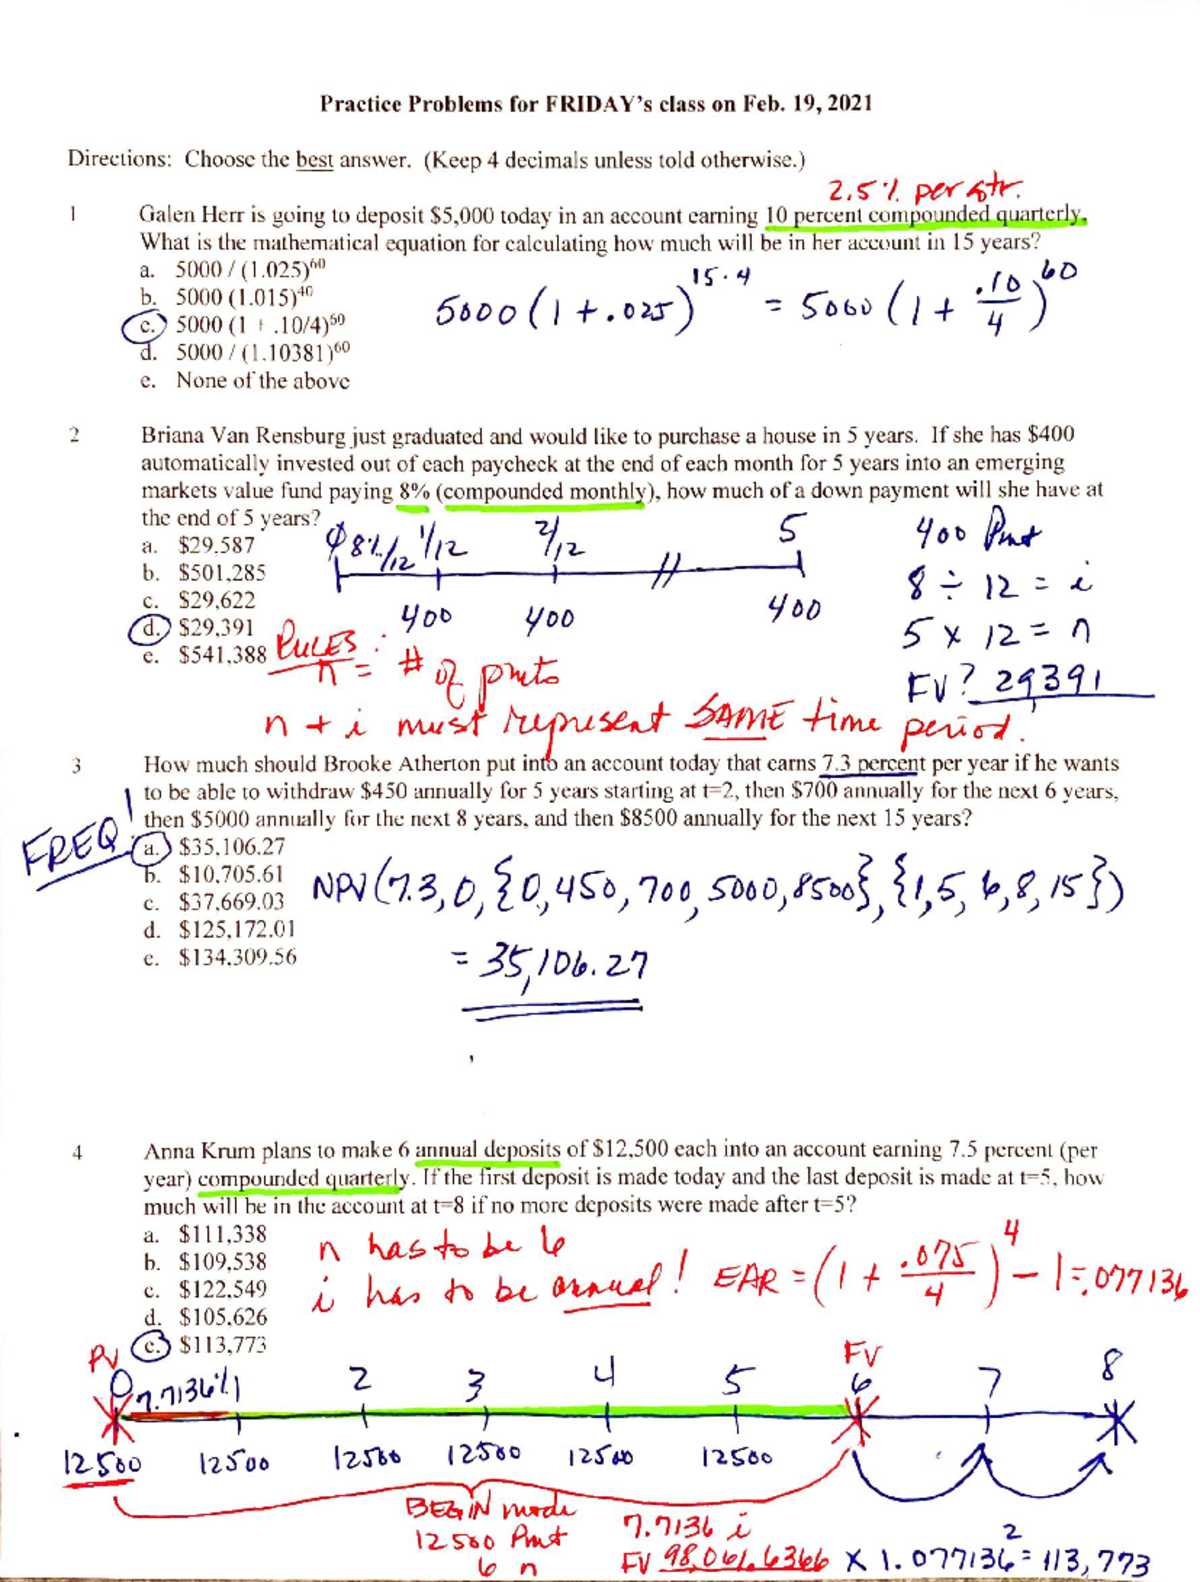 Practice Problems for FRIDAY's class on Feb. 19, 2021
Directions: Choose the best answer. (Keep 4 decimals unless told otherwise.)
2.5% per qtr.
1 Galen Herr is going to deposit $5,000 today in an account earning 10 percent compounded quarterly.
What is the mathematical equation for calculating how much will be in her account in 15 years?
a. 5000 / (1.025)^60
b. 5000 (1.015)^40
c. 5000 (1 + .10/4)^60
d. 5000 / (1.10381)^60
e. None of the above
5000(1+.025)^15·4 = 5000(1+.10/4)^60
2 Briana Van Rensburg just graduated and would like to purchase a house in 5 years. If she has $400
automatically invested out of each paycheck at the end of each month for 5 years into an emerging
markets value fund paying 8% (compounded monthly), how much of a down payment will she have at
the end of 5 years?
a. $29.587
b. $501,285
c. $29,622
d. $29,391
e. $541,388
0 8%/12 1/12 2/12 5
400 400 400
400 Pmt
8 ÷ 12 = i
5 x 12 = n
FV? 29391
RULES:
n = # of pmts
n + i must represent SAME time period.
3 How much should Brooke Atherton put into an account today that earns 7.3 percent per year if he wants
to be able to withdraw $450 annually for 5 years starting at t=2, then $700 annually for the next 6 years,
then $5000 annually for the next 8 years, and then $8500 annually for the next 15 years?
FREQ!
a. $35,106.27
b. $10,705.61
c. $37,669.03
d. $125,172.01
e. $134,309.56
NPV(7.3,0,{0,450,700,5000,8500},{1,5,6,8,15})
= 35,106.27
4 Anna Krum plans to make 6 annual deposits of $12,500 each into an account earning 7.5 percent (per
year) compounded quarterly. If the first deposit is made today and the last deposit is made at t=5, how
much will be in the account at t=8 if no more deposits were made after t=5?
a. $111,338
b. $109,538
c. $122,549
d. $105,626
e. $113,773
n has to be 6
i has to be annual! EAR = (1 + .075/4)^4 - 1 = .077136
PV FV
0 7.7136% 1 2 3 4 5 6 7 8
12500 12500 12500 12500 12500 12500
BEGIN mode
12500 Pmt
6 n
7.7136 i
FV 98,061.6366 x 1.077136^2 = 113,773